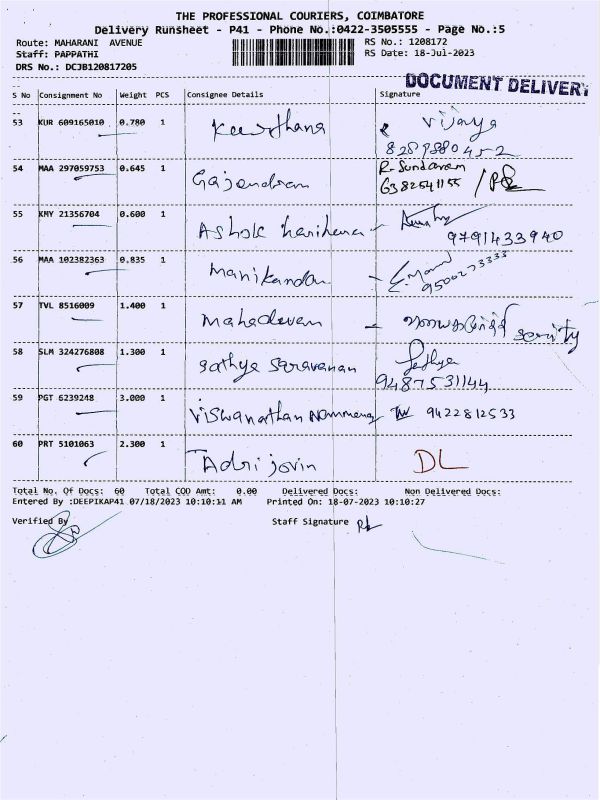 THE PROFESSIONAL COURIERS, COIMBATORE
Delivery Runsheet - P41 - Phone No.:0422-3505555 - Page No.:5
Route: MAHARANI AVENUE RS No.: 1208172
Staff: PAPPATHI RS Date: 18-Jul-2023
DRS No.: DCJB120817205
DOCUMENT DELIVERY
S No Consignment No Weight PCS Consignee Details Signature
53 KUR 609165010 0.780 1 Keerthana Vijaya
8289880452
54 MAA 297059753 0.645 1 Gajendran R. Sundaram
6382541155
55 KMY 21356704 0.600 1 Ashok harihara
9791433940
56 MAA 102382363 0.835 1 Manikandan
9500273333
57 TVL 8516009 1.400 1 Mahadevan
58 SLM 324276808 1.300 1 Sathya Saravanan Sathya
9487531144
59 PGT 6239248 3.000 1 Viswanathan 9422812533
60 PRT 5101063 2.300 1 Adrijovin DL
Total No. Of Docs: 60 Total COD Amt: 0.00 Delivered Docs: Non Delivered Docs:
Entered By :DEEPIKAP41 07/18/2023 10:10:11 AM Printed On: 18-07-2023 10:10:27
Verified By Staff Signature